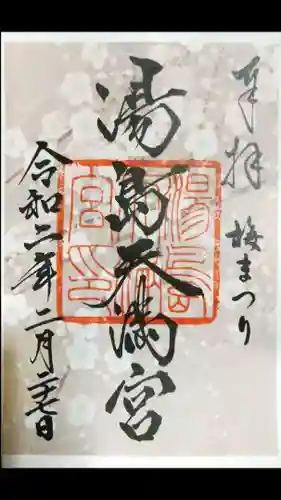 奉拝 梅まつり
湯島天満宮
令和二年二月二十七日